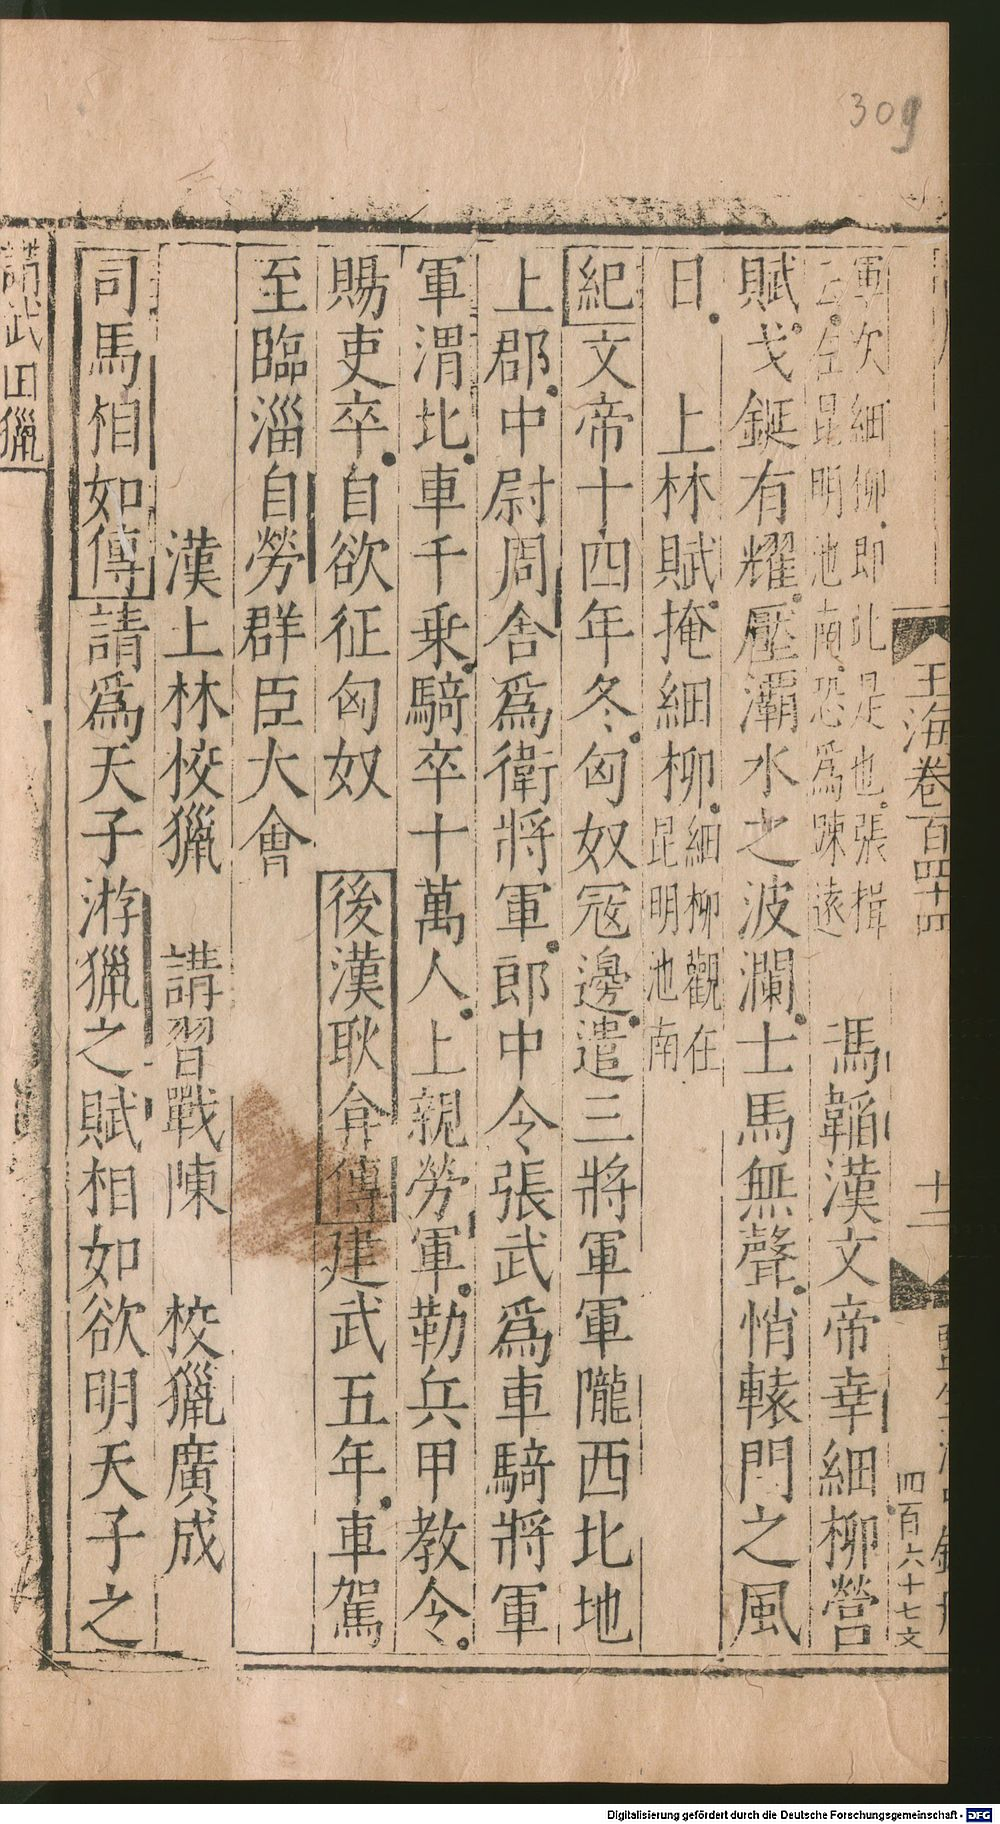 309
玉海卷百四十四
十二
四百六十七文
軍次細柳即此是也張揖
云在昆明池南恐為踈遠
馮韜漢文帝幸細柳營
賦戈鋋有耀壓灞水之波瀾士馬無聲悄轅門之風
日上林賦掩細柳細柳觀在
昆明池南
紀文帝十四年冬匈奴寇邊遣三將軍軍隴西北地
上郡中尉周舍爲衛將軍郎中令張武爲車騎將軍
軍渭北車千乗騎卒十萬人上親勞軍勒兵甲教令
賜吏卒自欲征匈奴後漢耿弇傳建武五年車駕
至臨淄自勞群臣大會
漢上林校獵講習戰陳校獵廣成
司馬相如傳請爲天子游獵之賦相如欲明天子之
講武田獵
Digitalisierung gefördert durch die Deutsche Forschungsgemeinschaft - DFG